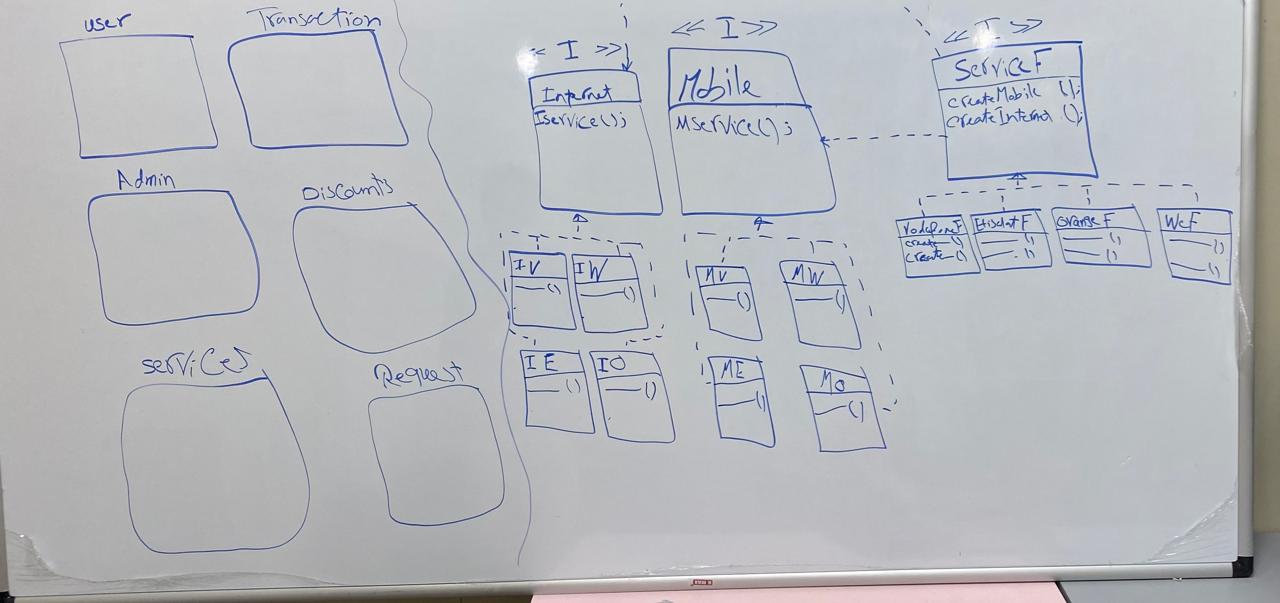 user
Transaction
Admin
Discounts
services
Request
<< I >>
Internet
Iservice();
<< I >>
Mobile
Mservice();
<< I >>
ServiceF
createMobile ();
createInternet ();
IV
()
IW
()
IE
()
IO
()
MV
()
MW
()
ME
()
MO
()
VodafoneF
create ()
create ()
EtisalatF
()
()
OrangeF
()
()
WeF
()
()